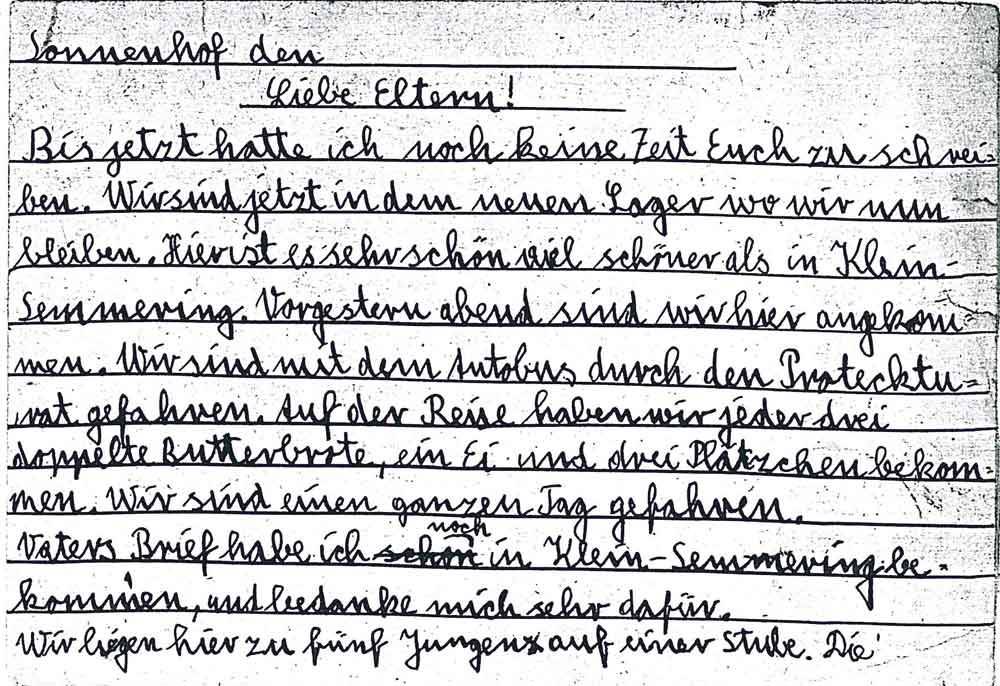 Sonnenhof den
Liebe Eltern!
Bis jetzt hatte ich noch keine Zeit Euch zu schrei=
ben. Wir sind jetzt in dem neuen Lager wo wir nun
bleiben. Hier ist es sehr schön viel schöner als in Klein-
Semmering. Vorgestern abend sind wir hier angekom
men. Wir sind mit dem Autobus durch den Protecktu=
rat gefahren. Auf der Reise haben wir jeder drei
doppelte Butterbrote, ein Ei und drei Plätzchen bekom=
men. Wir sind einen ganzen Tag gefahren.
noch
Vaters Brief habe ich schon in Klein-Semmering be=
kommen, und bedanke mich sehr dafür.
Wir liegen hier zu fünf Jungens auf einer Stube. Die